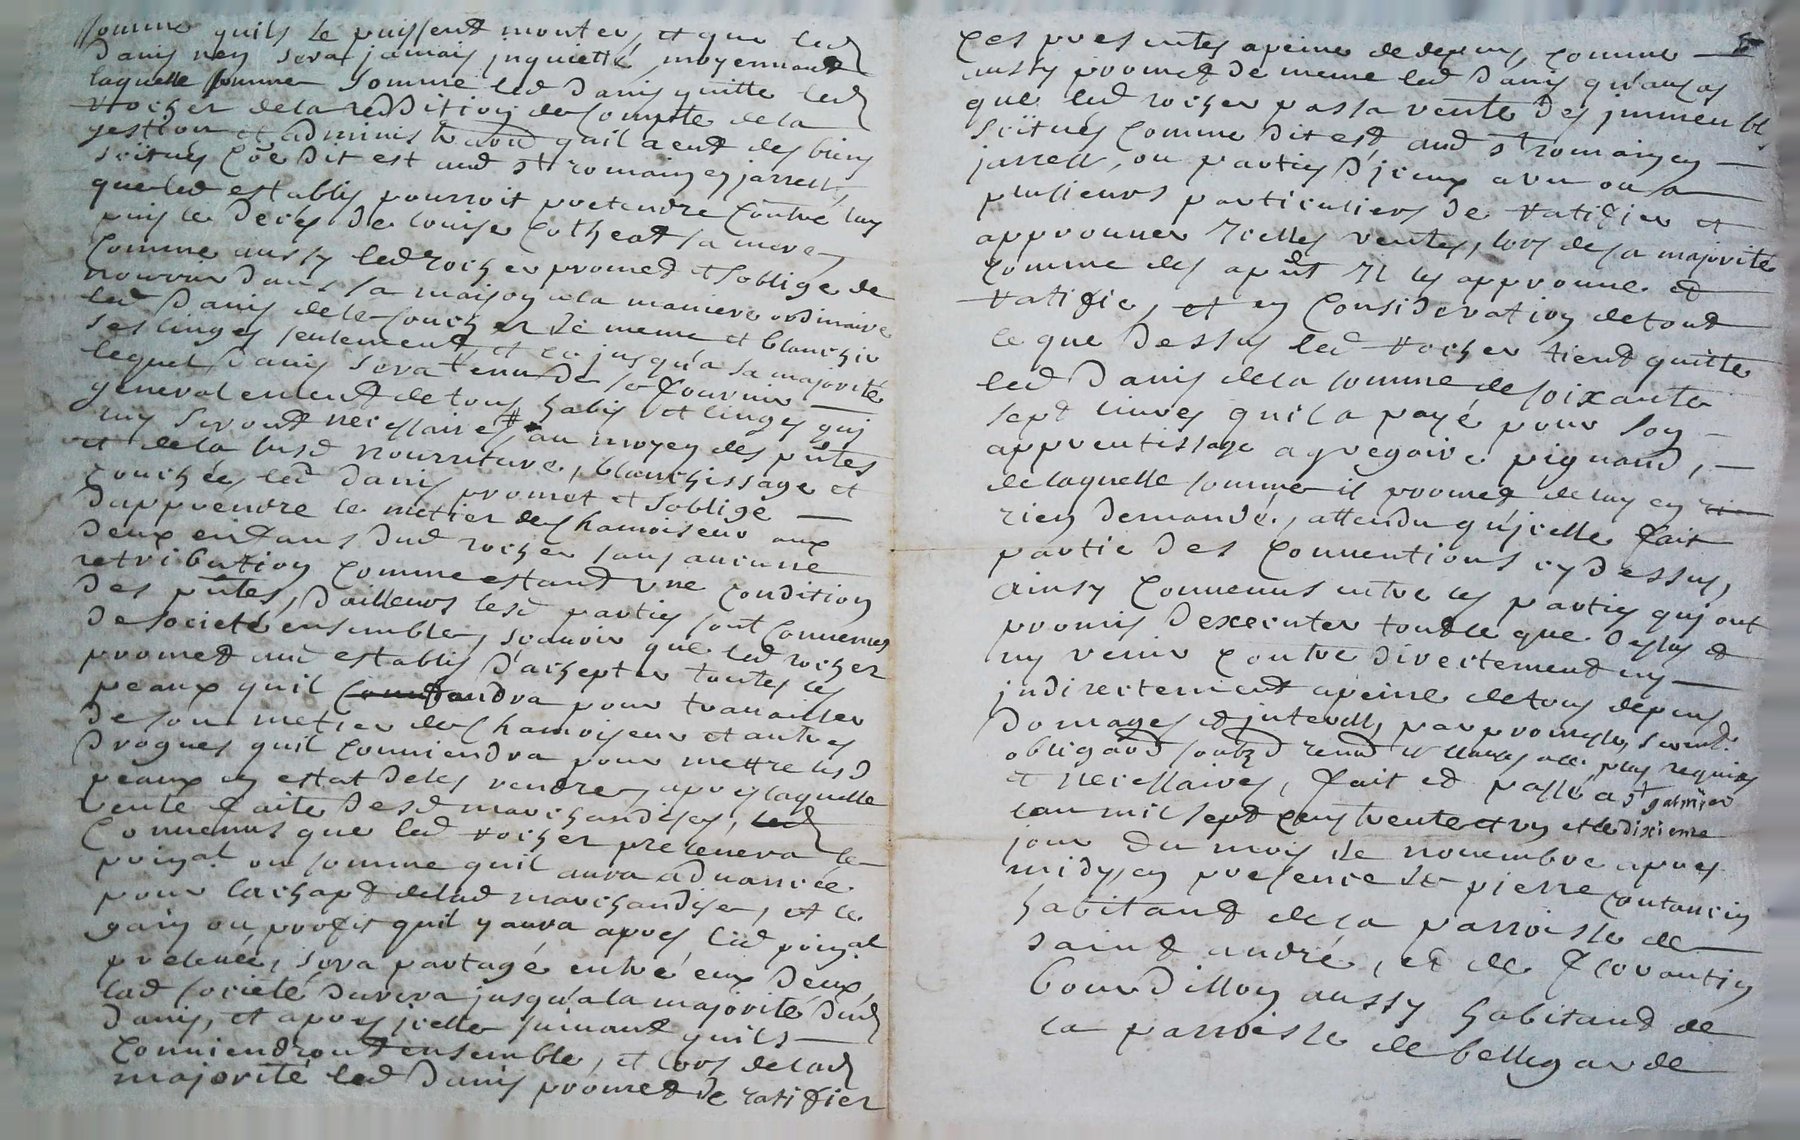 somme quils se puissent monter, et que led
Danis ney sera jamais jnquietté, moyennant
laquelle somme somme led Danis quitte led
rocher dela reddition de compte de la
gestion et administraōn quil a eut des biens
scitués coē dit est aud st romain en jarrest,
que led establis pourroit pretendre contre luy
puis le deces de louise cotheat sa mere,
comme aussy led rocher promet et soblige de
nourrir dans sa maison a la maniere ordinaire
led Danis de le coucher de meme et blanchir
ses linges seulement et ce jusqu'a sa majorité
lequel Danis sera tenu de se fournir
generalement de tous habis et linges quj
luy seront necessaires, au moyen des pntes
et de la susd nourriture, blanchissage et
couchée led Danis promet et soblige
dapprendre le metier de chamoiseur aux
deux enfans dud rocher sans aucune
retribution comme estant vne condition
des pntes, dailleurs lesd parties sont convenues
de societé ensemble, scavoir que led rocher
promet aud establis d'achepter toutes les
peaux quil faudra pour travailler
de son metier de chamoiseur et autres
drogues quil conviendra pour mettre lesd
peaux en estat de les vendre, apres laquelle
vente faite desd marchandises, led
convenus que led rocher prelevera le
poinal ou somme quil aura advancée
pour lachapt de lad marchandise, et le
gain ou profit quil y aura apres led poinal
prelevé, sera partagé entre eux deux,
lad societé durera jusqu'a la majorité dud
Danis, et apres jcelle suivant quils
conviendront ensemble, et lors de lad
majorité led Danis promet de ratifier
ces presentes a peine de depens, comme
aussy promet de meme led Danis qu'au cas
que led rocher passa vente des jmmeubl
scitués comme dit est aud st romain en
jarrest, ou parties d'jceux a vn ou a
plusieurs particuliers de ratifier et
approuver jcelles ventes, lors de sa majorité
comme des apnt Il les approuve et
ratifie, et en consideration de tout
ce que dessus led rocher tient quitte
led Danis de la somme de soixante
sept livres quil a payé pour son
apprentissage a gregoire pignand,
de laquelle somme il promet de luy en
rien demandé, attendu qu'jcelle fait
partie des conventions cy dessus,
ainsy convenus entre les parties quj ont
promis d'executer tout ce que dessus et
ny venir contre directement ny
jndirectement a peine de tous depens
domages et jnterests, par promesses, serment
obligaōn renōn et clauses plus requises
et necessaires, fait et passé a st galmier
lan mil sept cens trente et vn et le dixieme
jour du mois de novembre apres
midy, en presence de pierre coutancin
habitant de la parroisse de
saint andré, et de florantin
bourdillon aussy habitant de
la parroisse de bellegarde